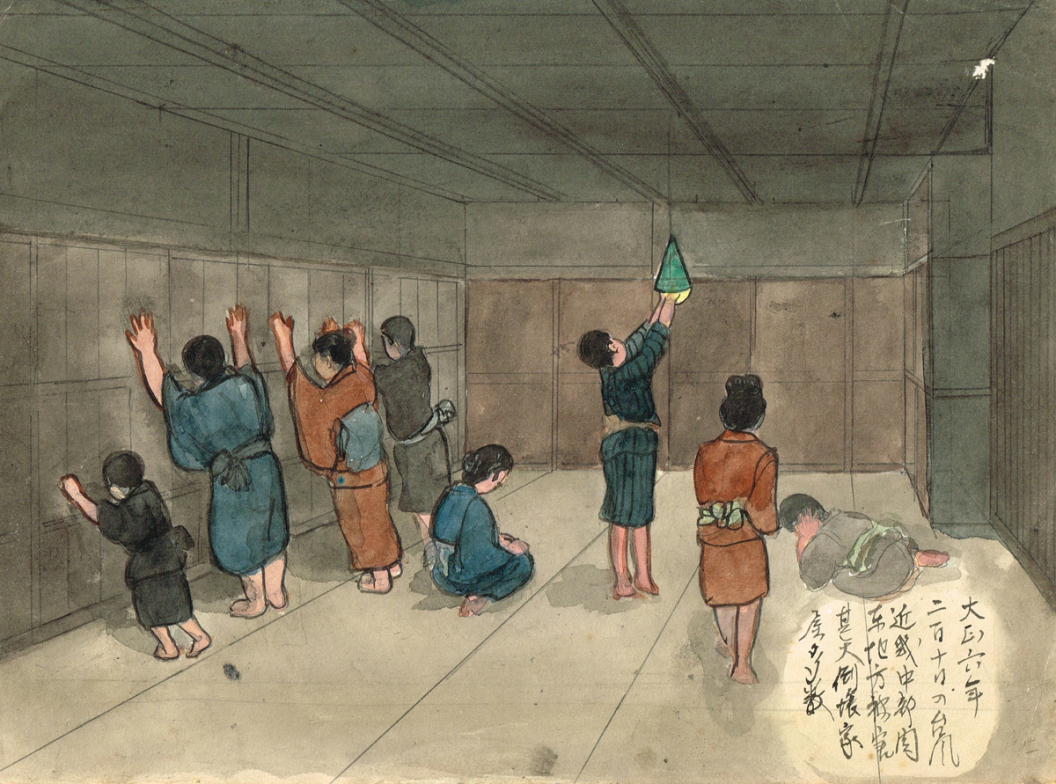 大正六年
二百十日の台風
近畿中部関
東地方被害
甚大倒壊家
屋多数